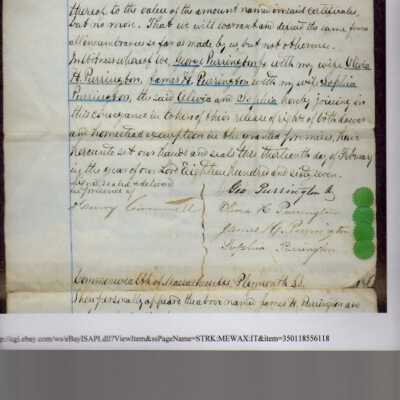 thereof to the value of the amount named in said certificates,
but no more. That we will warrant and defend the same from
all incumbrances so far as made by us, but not otherwise.
In witness whereof we, George Purrington Jr with my wife Olivia
H. Purrington, James H. Purrington with my wife Sophia
Purrington, the said Olivia and Sophia hereby joining in
this conveyance in token of their release of rights of both dower
and homestead exemption in the granted premises, have
hereunto set our hands and seals this thirteenth day of February
in the year of our Lord Eighteen hundred and sixty seven.
Signed, sealed & delivered
in presence of
Geo. Purrington Jr
Olivia H. Purrington
James H. Purrington
Sophia Purrington
Commonwealth of Massachusetts Plymouth SS.
Then personally appeared the above named James H. Purrington and
http://cgi.ebay.com/ws/eBayISAPI.dll?ViewItem&ssPageName=STRK:MEWAX:IT&item=350118556118